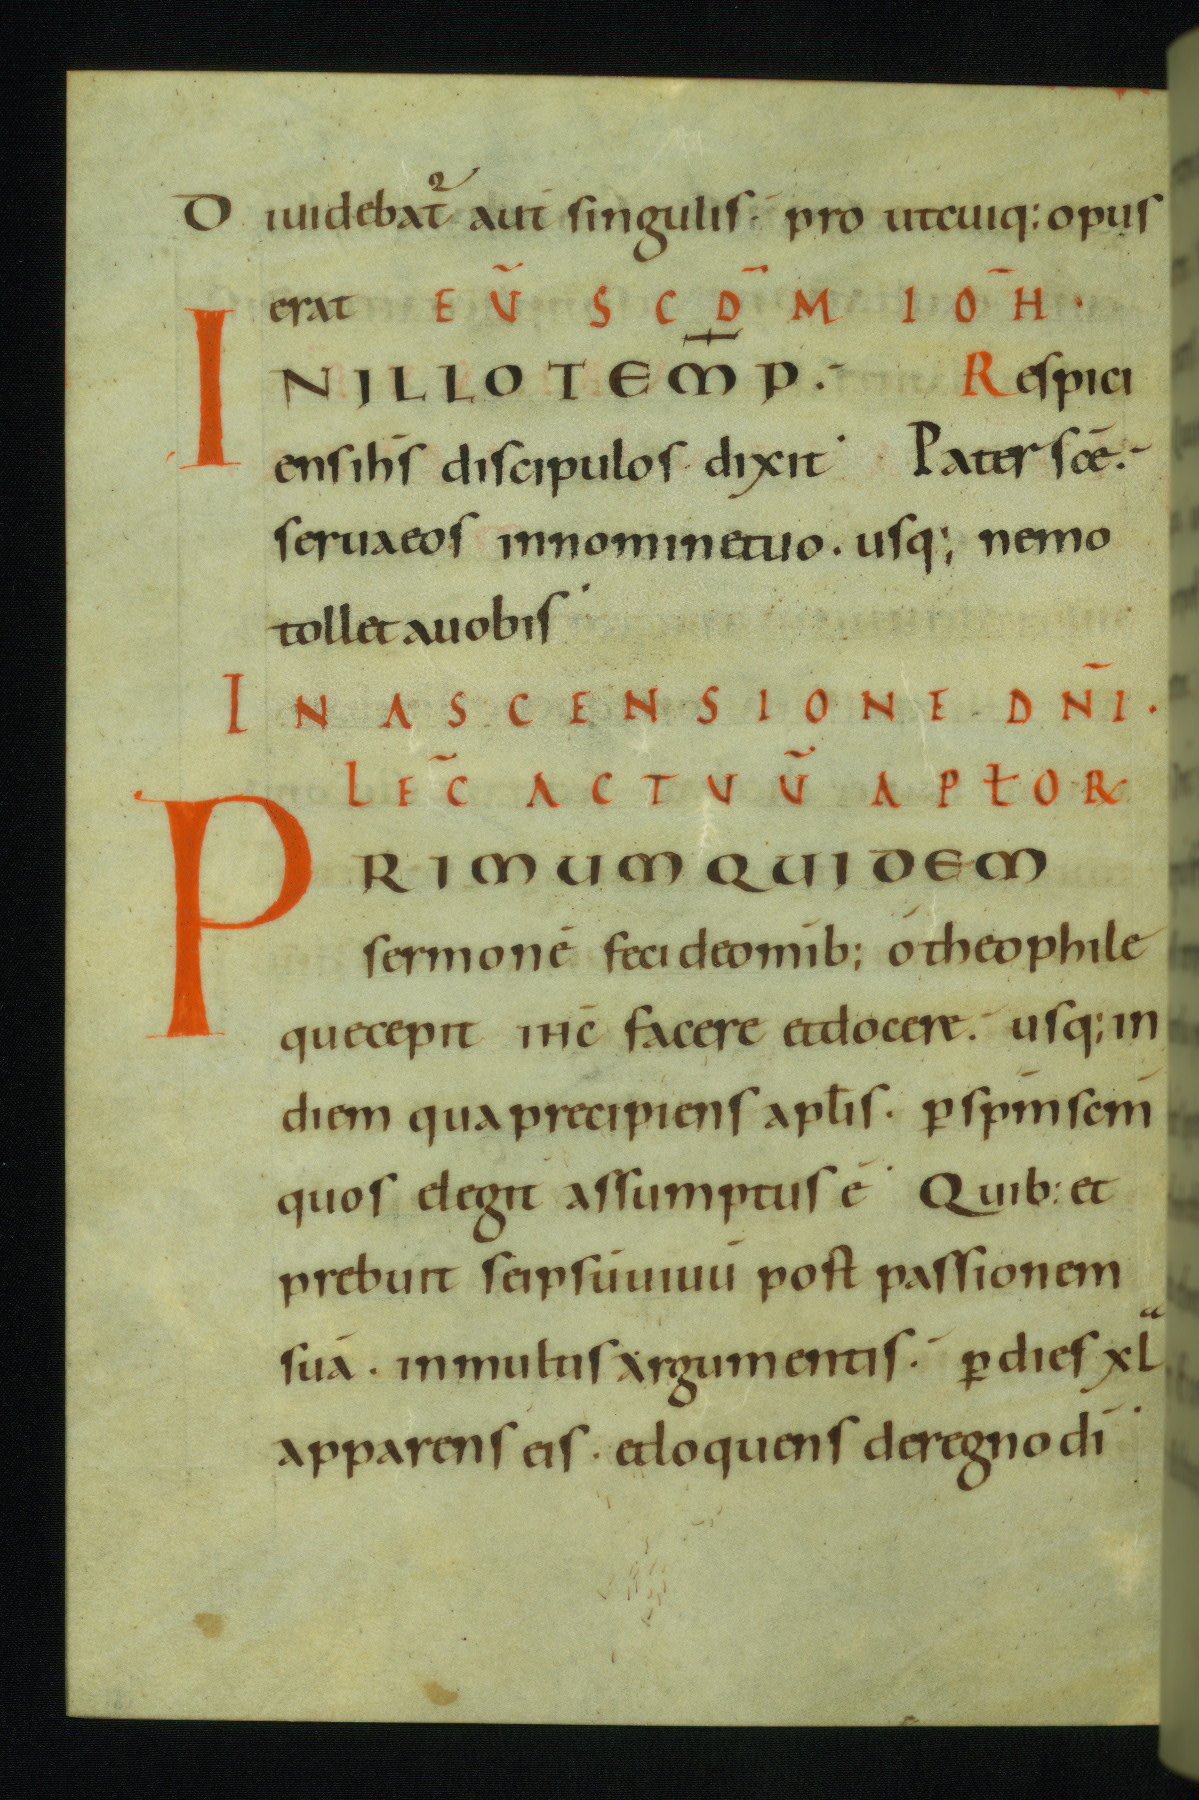 Diuidebat᷑ aut̄ singulis. pro utcuiq; opus
erat EṼ SCD̄M IOH̄.
IN ILLO TEM̄P. Respici
ens ih̄s discipulos dixit Pater sc̄e.
serua eos in nomine tuo. usq; nemo
tollet a uobis
IN ASCENSIONE DN̄I.
LEC̄ ACTUŪ APŁOꝜ
PRIMUM QUIDEM
sermonē feci de om̄ib; ó theophile
que cepit ih̄c facere et docere. usq; in
diem qua precipiens apłis. ꝑ sp̄m sc̄m
quos elegit assumptus ē Quib; et
prebuit seipsū uiuū post passionem
suā. in multis argumentis. ꝑ dies xl
apparens eis. et loquens de regno dī